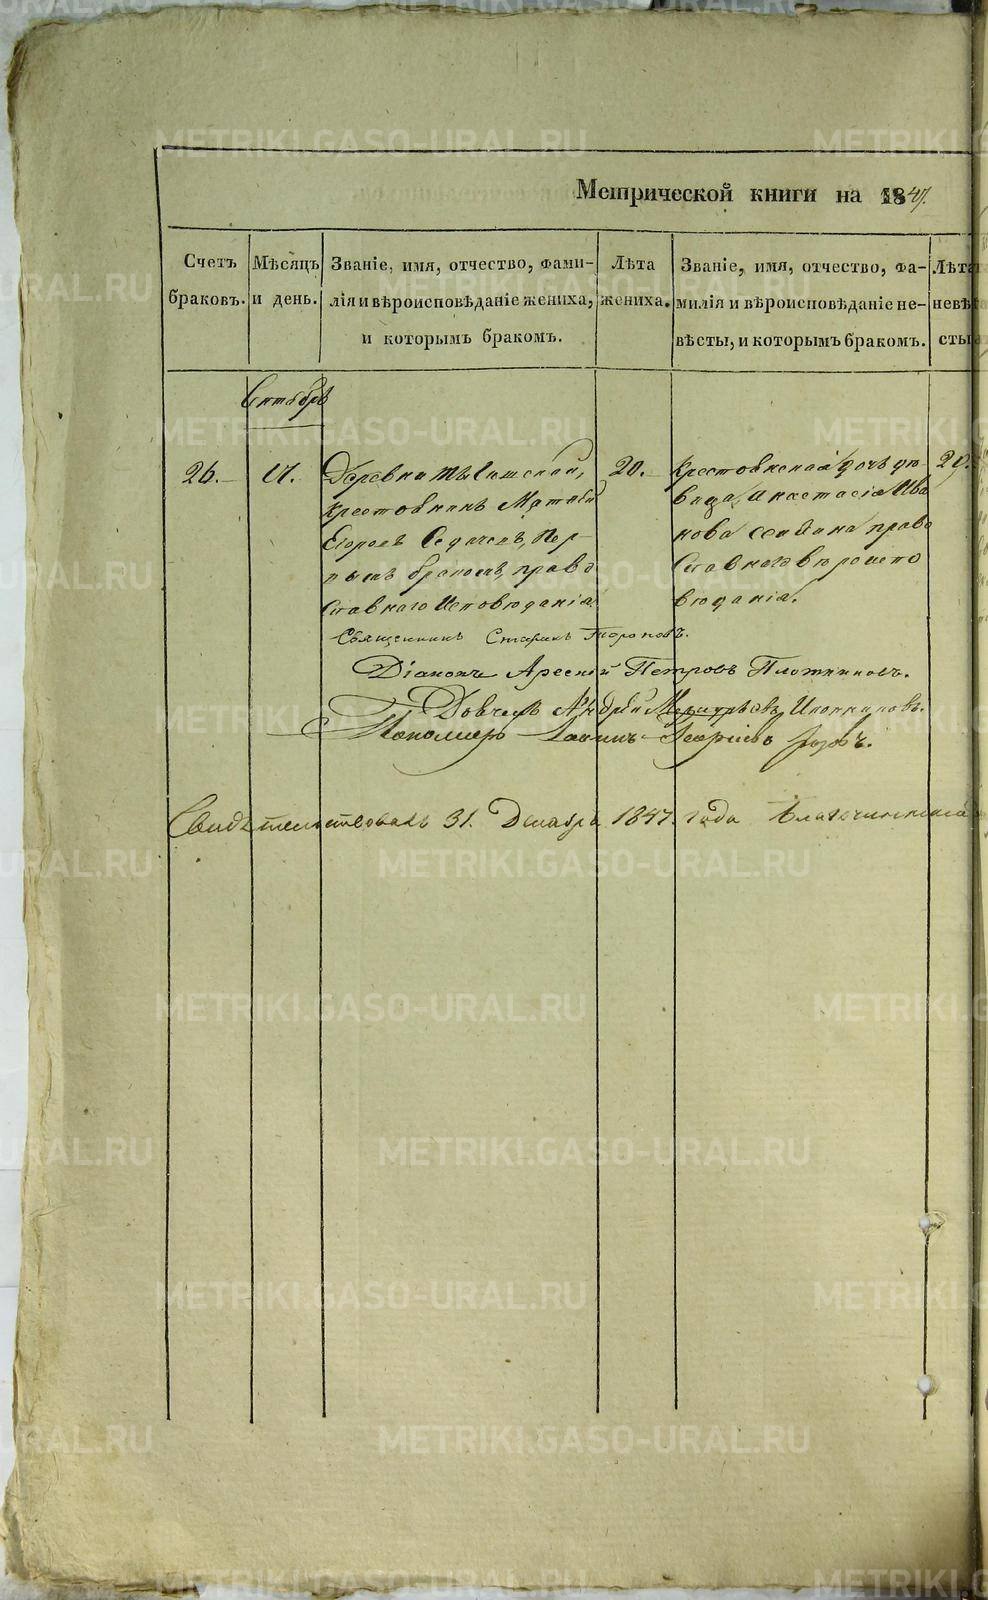 Метрической книги на 1847.
Счетъ браковъ.
Мѣсяцъ и день.
Званіе, имя, отчество, фами-
лія и вѣроисповѣданіе жениха,
и которымъ бракомъ.
Лѣта жениха.
Званіе, имя, отчество, фа-
милія и вѣроисповѣданіе не-
вѣсты, и которымъ бракомъ.
Лѣта
невѣ
сты
26.
20.
Деревни
крестьянинъ Матвей
Егоровъ Седачевъ, пер-
вымъ бракомъ, право
славнаго исповѣданія
крестьянская дочь дѣ
вица, Анастасія Ива
нова право
славнаго вѣроиспо
вѣданія.
Священникъ Стефанъ Тороповъ.
Діаконъ Арсеній Петровъ Плотниковъ.
Андрей Иконниковъ.
Пономарь Іоаннъ Георгіевъ
Свидѣтельствовалъ 31. Декабря 1847. года Благочинный
METRIKI.GASO-URAL.RU